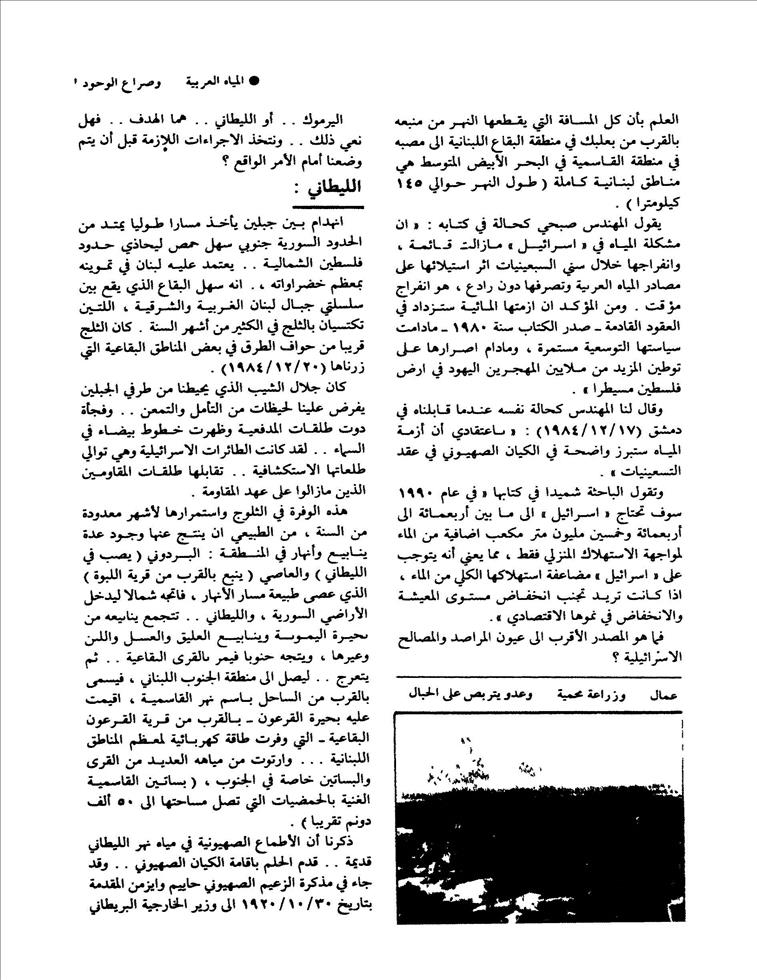 ● المياه العربية وصراع الوجود !
العلم بأن كل المسافة التي يقطعها النهر من منبعه
بالقرب من بعلبك في منطقة البقاع اللبنانية الى مصبه
في منطقة القاسمية في البحر الأبيض المتوسط هي
مناطق لبنانية كاملة ( طول النهر حوالي ١٤٥
كيلومترا ) .
يقول المهندس صبحي كحالة في كتابه : « ان
مشكلة المياه في « اسرائيل » مازالت قائمة ،
وانفراجها خلال سني السبعينيات اثر استيلائها على
مصادر المياه العربية وتصرفها دون رادع ، هو انفراج
مؤقت . ومن المؤكد ان ازمتها المائية ستزداد في
العقود القادمة ـ صدر الكتاب سنة ١٩٨٠ ـ مادامت
سياستها التوسعية مستمرة ، ومادام اصرارها على
توطين المزيد من ملايين المهجرين اليهود في ارض
فلسطين مسيطرا » .
وقال لنا المهندس كحالة نفسه عندما قابلناه في
دمشق (١٩٨٤/١٢/١٧) : « باعتقادي أن أزمة
المياه ستبرز واضحة في الكيان الصهيوني في عقد
التسعينيات » .
وتقول الباحثة شميدا في كتابها « في عام ١٩٩٠
سوف تحتاج « اسرائيل » الى ما بين أربعمائة الى
أربعمائة وخمسين مليون متر مكعب اضافية من الماء
لمواجهة الاستهلاك المنزلي فقط ، مما يعني أنه يتوجب
على « اسرائيل » مضاعفة استهلاكها الكلي من الماء ،
اذا كانت تريد تجنب انخفاض مستوى المعيشة
والانخفاض في نموها الاقتصادي » .
فما هو المصدر الأقرب الى عيون المراصد والمصالح
الاسرائيلية ؟
عمال وزراعة محمية وعدو يتربص على الجبال
اليرموك . . أو الليطاني . . هما الهدف . . فهل
نعي ذلك . . ونتخذ الاجراءات اللازمة قبل أن يتم
وضعنا أمام الأمر الواقع ؟
الليطاني :
انهدام بين جبلين يأخذ مسارا طوليا يمتد من
الحدود السورية جنوبي سهل حمص ليحاذي حدود
فلسطين الشمالية . . يعتمد عليه لبنان في تموينه
بمعظم خضراواته . . انه سهل البقاع الذي يقع بين
سلسلتي جبال لبنان الغربية والشرقية ، اللتين
تكتسيان بالثلج في الكثير من أشهر السنة . كان الثلج
قريبا من حواف الطرق في بعض المناطق البقاعية التي
زرناها (١٩٨٤/١٢/٢٠) .
كان جلال الشيب الذي يحيطنا من طرفي الجبلين
يفرض علينا لحيظات من التأمل والتمعن . . وفجأة
دوت طلقات المدفعية وظهرت خطوط بيضاء في
السماء . . لقد كانت الطائرات الاسرائيلية وهي توالي
طلعاتها الاستكشافية . . تقابلها طلقات المقاومين
الذين مازالوا على عهد المقاومة .
هذه الوفرة في الثلوج واستمرارها لأشهر معدودة
من السنة ، من الطبيعي ان ينتج عنها وجود عدة
ينابيع وأنهار في المنطقة : البردوني ( يصب في
الليطاني ) والعاصي ( ينبع بالقرب من قرية اللبوة )
الذي عصى طبيعة مسار الأنهار ، فاتجه شمالا ليدخل
الأراضي السورية ، والليطاني . . تتجمع ينابيعه من
بحيرة اليمونة وينابيع العليق والعسل واللبن
وغيرها ، ويتجه جنوبا فيمر بالقرى البقاعية . . ثم
يتعرج . . ليصل الى منطقة الجنوب اللبناني ، فيسمى
بالقرب من الساحل باسم نهر القاسمية ، اقيمت
عليه بحيرة القرعون ـ بالقرب من قرية القرعون
البقاعية ـ التي وفرت طاقة كهربائية لمعظم المناطق
اللبنانية . . . وارتوت من مياهه العديد من القرى
والبساتين خاصة في الجنوب ، ( بساتين القاسمية
الغنية بالحمضيات التي تصل مساحتها الى ٥٠ ألف
دونم تقريبا ) .
ذكرنا أن الأطماع الصهيونية في مياه نهر الليطاني
قديمة . . قدم الحلم باقامة الكيان الصهيوني . . وقد
جاء في مذكرة الزعيم الصهيوني حاييم وايزمن المقدمة
بتاريخ ١٩٢٠/١٠/٣٠ الى وزير الخارجية البريطاني